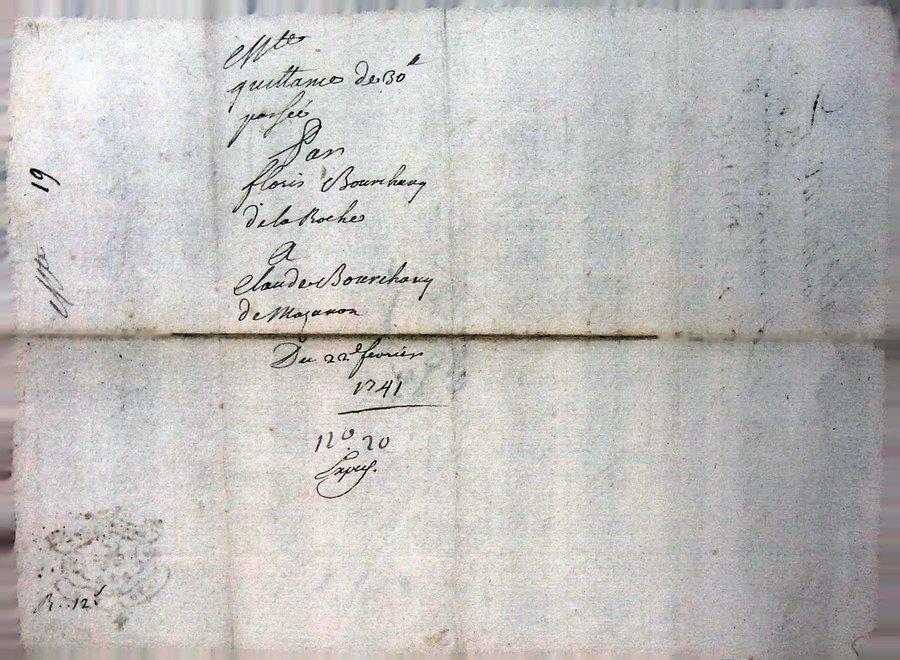 quittance de 30ᵗᵗ
passée
Par
floris Bourchany
de la Roche
A
Claude Bourchany
de Mazanon
Du 22ᵉ fevrier
1741
nº. 20
19
R.. 12ˢ